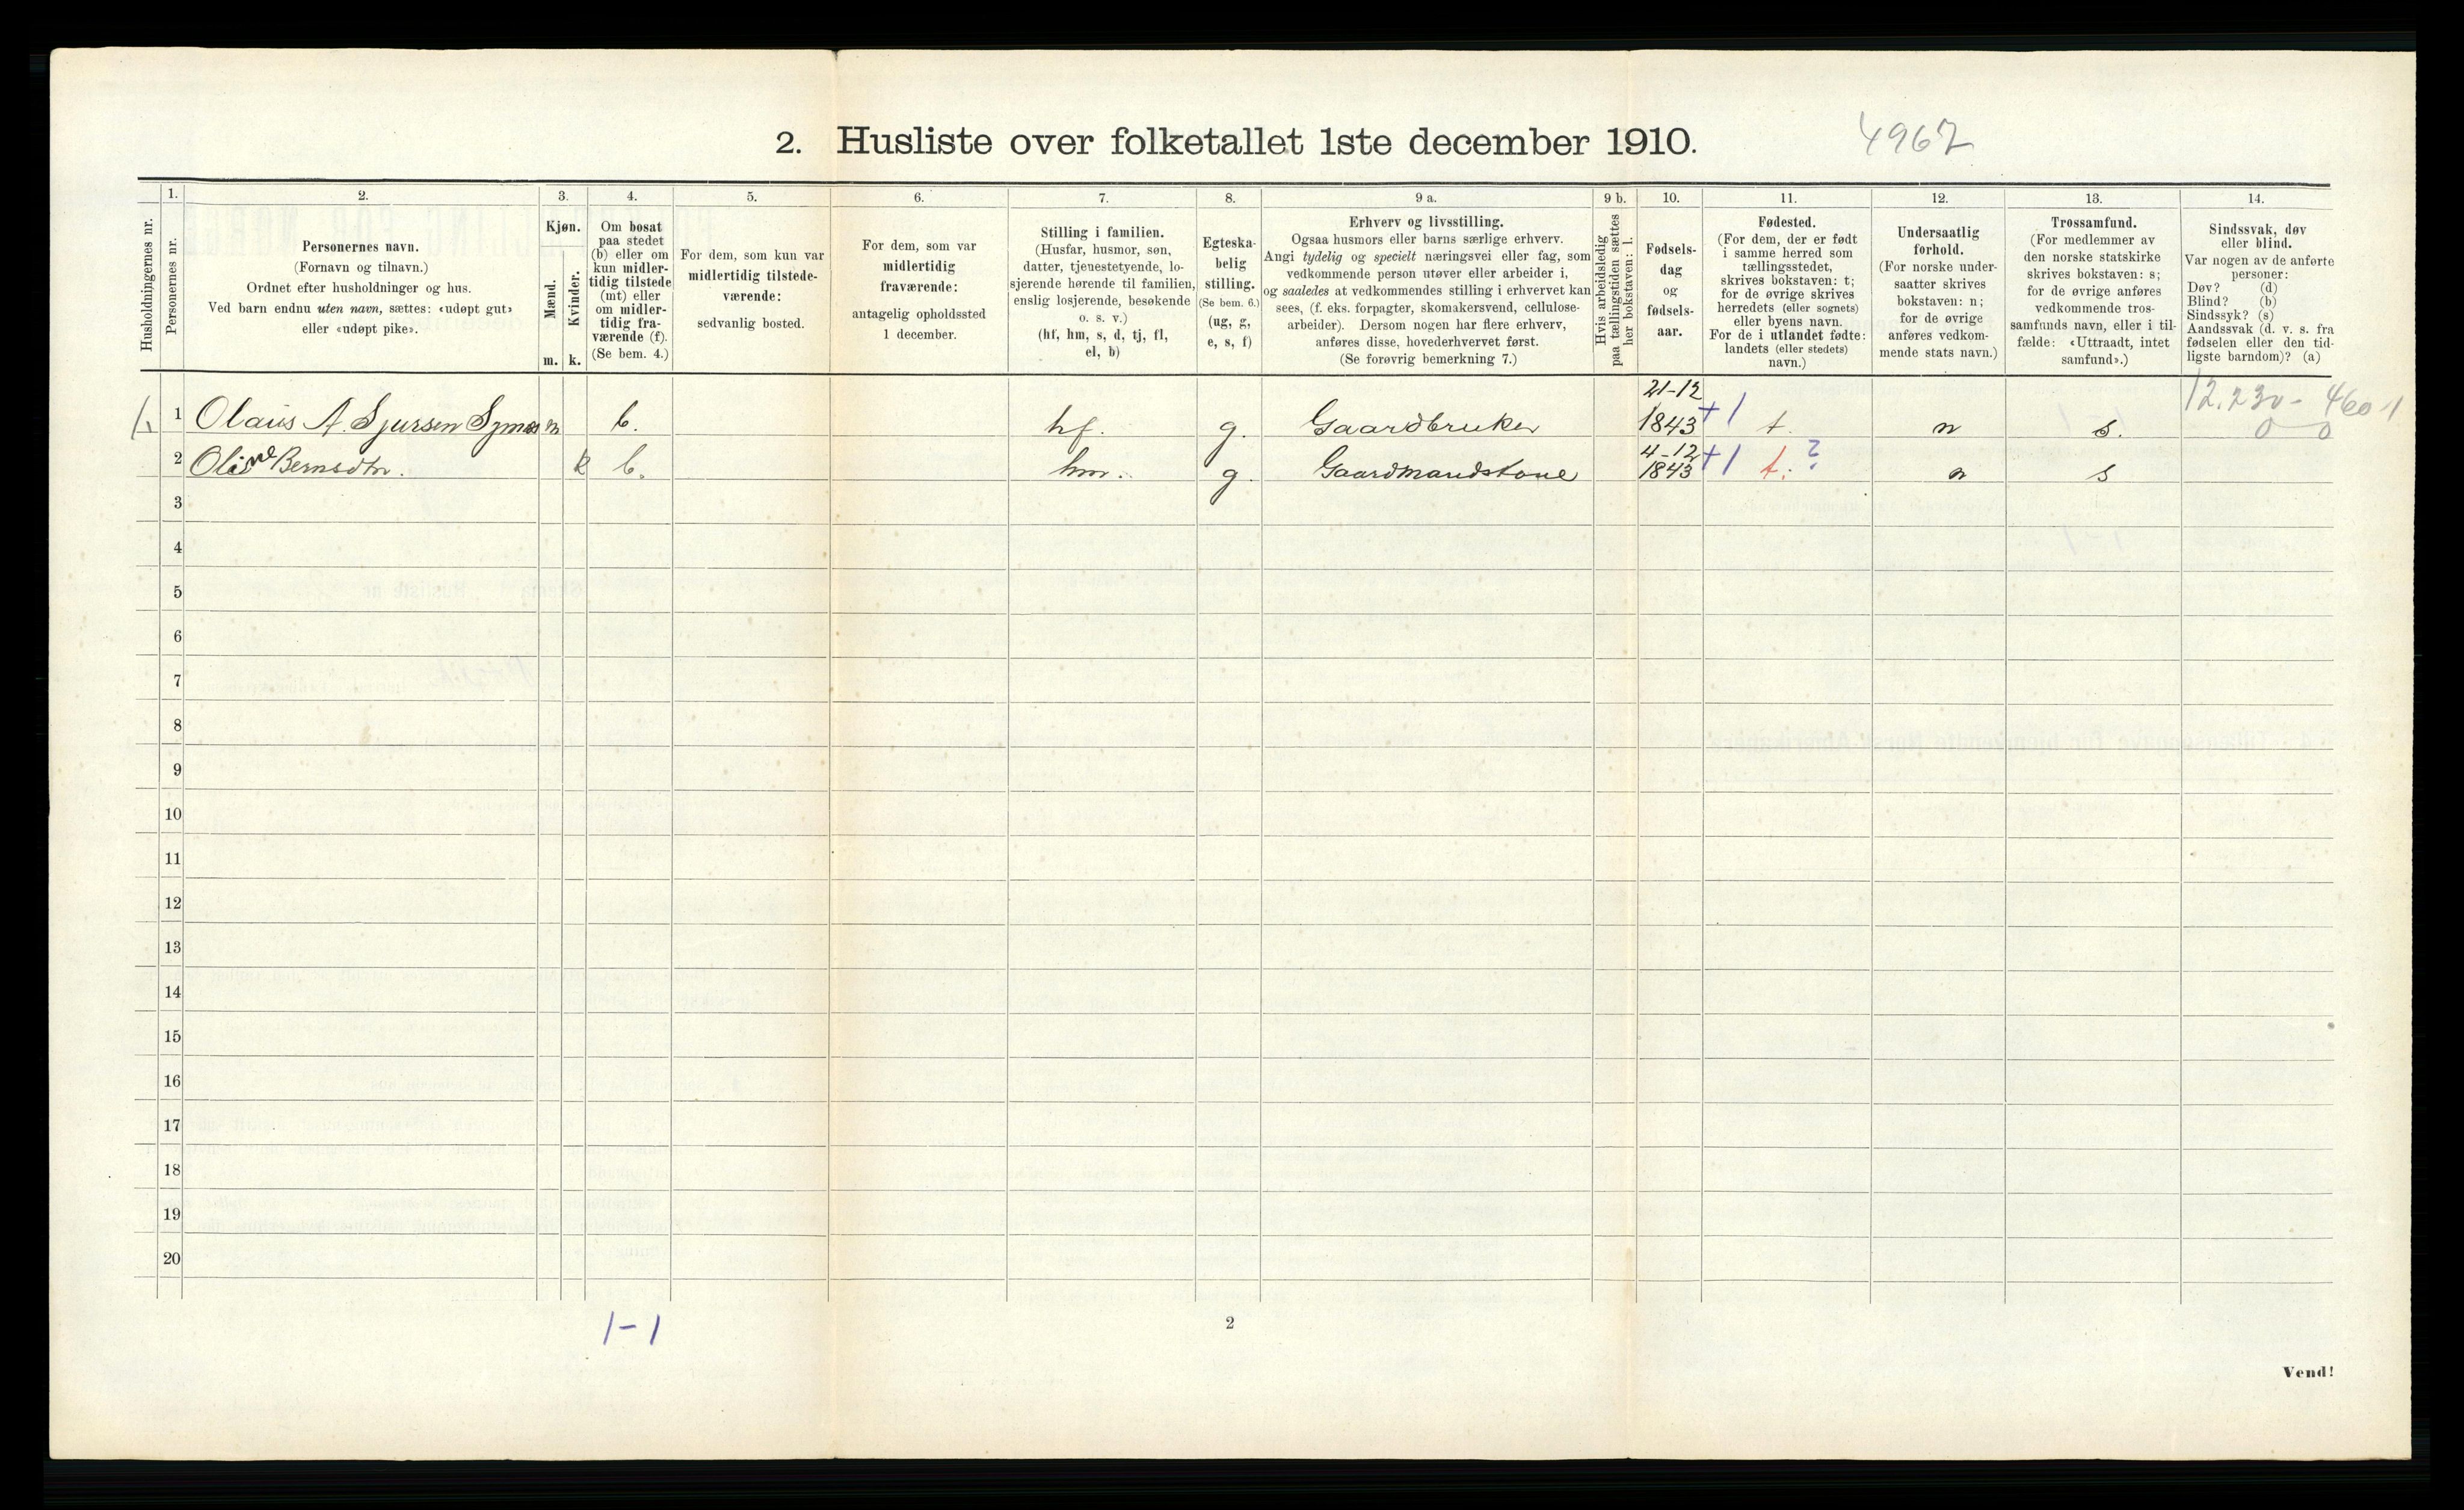 2. Husliste over folketallet 1ste december 1910.
4967
Husholdningernes nr.
1.
Personernes nr.
2.
Personernes navn.
(Fornavn og tilnavn.)
Ordnet efter husholdninger og hus.
Ved barn endnu uten navn, sættes: «udøpt gut»
eller «udøpt pike».
3.
Kjøn.
Mænd.
Kvinder.
m. k.
4.
Om bosat
paa stedet
(b) eller om
kun midler-
tidig tilstede
(mt) eller
om midler-
tidig fra-
værende (f).
(Se bem. 4.)
5.
For dem, som kun var
midlertidig tilstede-
værende:
sedvanlig bosted.
6.
For dem, som var
midlertidig
fraværende:
antagelig opholdssted
1 december.
7.
Stilling i familien.
(Husfar, husmor, søn,
datter, tjenestetyende, lo-
sjerende hørende til familien,
enslig losjerende, besøkende
o. s. v.)
(hf, hm, s, d, tj, fl,
el, b)
8.
Egteska-
belig
stilling.
(Se bem. 6.)
(ug, g,
e, s, f)
9 a.
Erhverv og livsstilling.
Ogsaa husmors eller barns særlige erhverv.
Angi tydelig og specielt næringsvei eller fag, som
vedkommende person utøver eller arbeider i,
og saaledes at vedkommendes stilling i erhvervet kan
sees, (f. eks. forpagter, skomakersvend, cellulose-
arbeider). Dersom nogen har flere erhverv,
anføres disse, hovederhvervet først.
(Se forøvrig bemerkning 7.)
9 b.
Hvis arbeidsledig
paa tællingstiden sættes
her bokstaven: l.
10.
Fødsels-
dag
og
fødsels-
aar.
11.
Fødested.
(For dem, der er født
i samme herred som
tællingsstedet,
skrives bokstaven: t;
for de øvrige skrives
herredets (eller sognets)
eller byens navn.
For de i utlandet fødte:
landets (eller stedets)
navn.)
12.
Undersaatlig
forhold.
(For norske under-
saatter skrives
bokstaven: n;
for de øvrige
anføres vedkom-
mende stats navn.)
13.
Trossamfund.
(For medlemmer av
den norske statskirke
skrives bokstaven: s;
for de øvrige anføres
vedkommende tros-
samfunds navn, eller i til-
fælde: «Uttraadt, intet
samfund».)
14.
Sindssvak, døv
eller blind.
Var nogen av de anførte
personer:
Døv? (d)
Blind? (b)
Sindssyk? (s)
Aandssvak (d. v. s. fra
fødselen eller den tid-
ligste barndom)? (a)
12.230 - 460-1
0 0
1 Olaus A. Sjursen m b. hf. g. Gaardbruker 21-12 1843 +1 t. n s.
2 Oline Bernsdtr. k b. hm. g. Gaardmandskone 4-12 1843 +1 t. ? n s
3
4
5
6
7
8
9
10
11
12
13
14
15
16
17
18
19
20
1-1
2
Vend!